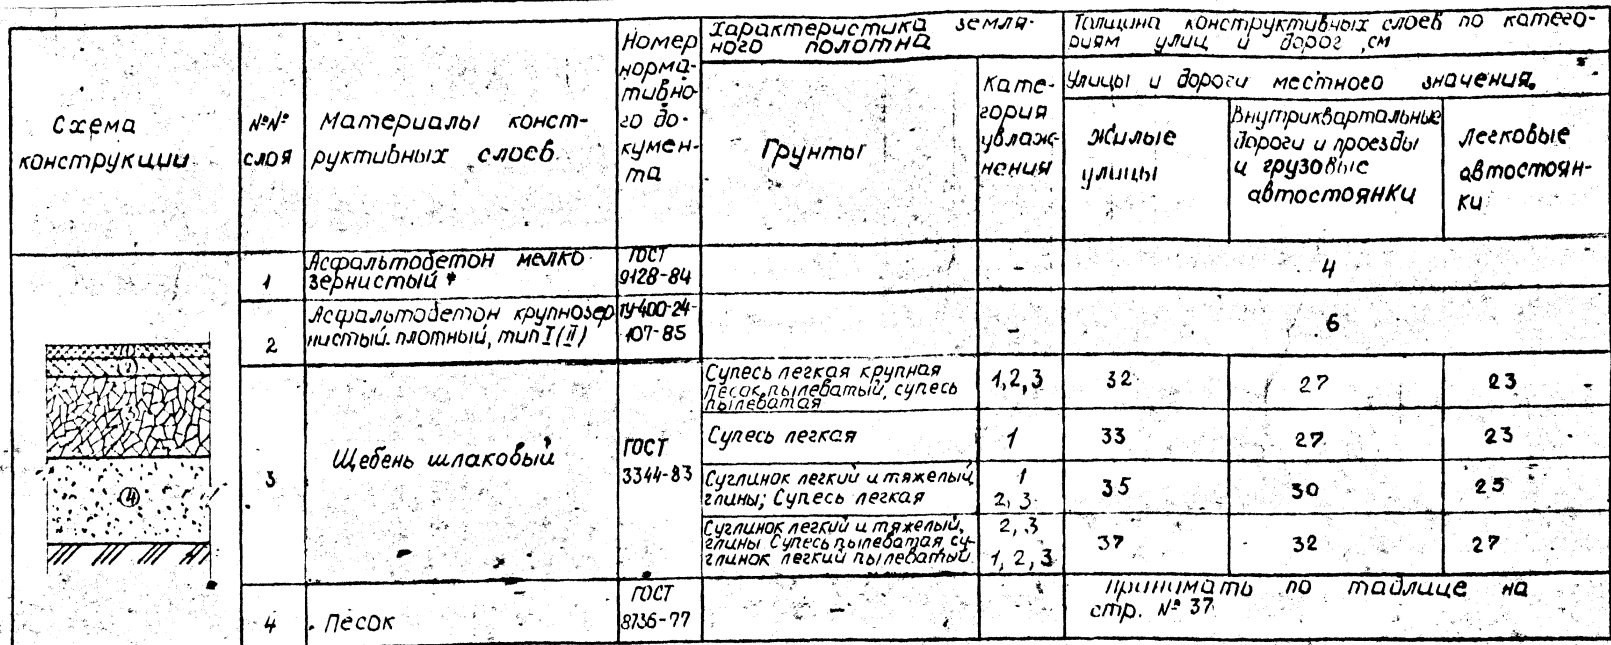 Схема
конструкции
№№
слоя
Материалы конст-
руктивных слоев
Номер
норма-
тивно-
го до-
кумен-
та
Характеристика земля-
ного полотна
Грунты
Кате-
гория
увлаж-
нения
Толщина конструктивных слоев по катего-
риям улиц и дорог, см
Улицы и дороги местного значения.
Жилые
улицы
Внутриквартальные
дороги и проезды
и грузовые
автостоянки
легковые
автостоян-
ки
1
Асфальтобетон мелко-
зернистый *
ГОСТ
9128-84
-
4
2
Асфальтобетон крупнозер
нистый плотный, тип I(II)
ТУ-400-24-
107-85
-
6
3
Щебень шлаковый
ГОСТ
3344-83
Супесь легкая крупная
песок пылеватый, супесь
пылеватая
1,2,3
32
27
23
Супесь легкая
1
33
27
23
Суглинок легкий и тяжелый,
глины; Супесь легкая
1
2, 3
35
30
25
Суглинок легкий и тяжелый,
глины Супесь пылеватая су-
глинок легкий пылеватый
2, 3
1, 2, 3
37
32
27
4
Песок
ГОСТ
8736-77
-
принимать по таблице на
стр. № 37
(1)
(4)